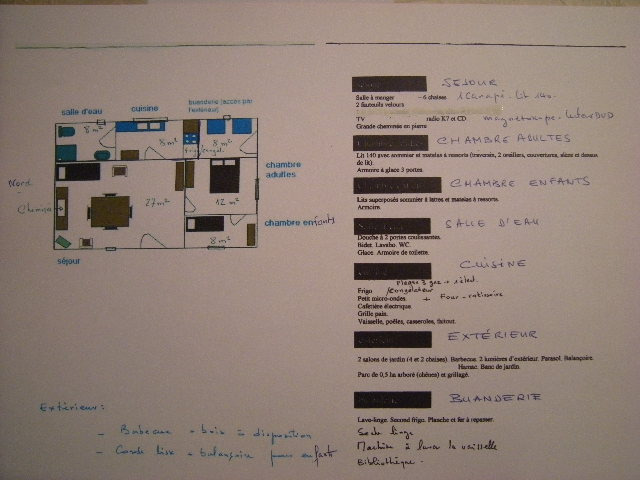 salle d'eau
cuisine
buanderie (accès par l'extérieur)
8 m²
8 m²
8 m²
frigo/congel.
chambre adultes
Nord
Cheminée
27 m²
12 m²
chambre enfants
8 m²
séjour
Extérieur :
- Barbecue + bois à disposition
- Corde lisse + balançoire pour enfants
SEJOUR
Salle à manger - 6 chaises. 1 Canapé-lit 140.
2 fauteuils velours
TV radio K7 et CD magnétoscope - lecteur DVD
Grande cheminée en pierre
CHAMBRE ADULTES
Lit 140 avec sommier et matelas à ressorts (traversin, 2 oreillers, couvertures, alèze et dessus
de lit).
Armoire à glace 3 portes.
CHAMBRE ENFANTS
Lits superposés sommier à lattes et matelas à ressorts.
Armoire.
SALLE D'EAU
Douche à 2 portes coulissantes.
Bidet. Lavabo. WC.
Glace. Armoire de toilette.
CUISINE
Plaque 3 gaz + 1 élect.
Frigo /congélateur
Petit micro-ondes + Four-rotissoire
Cafetière électrique.
Grille pain.
Vaisselle, poêles, casseroles, faitout.
EXTÉRIEUR
2 salons de jardin (4 et 2 chaises). Barbecue. 2 lumières d'extérieur. Parasol. Balançoire.
Hamac. Banc de jardin.
Parc de 0,5 ha arboré (chênes) et grillagé.
BUANDERIE
Lave-linge. Second frigo. Planche et fer à repasser.
Sèche linge
Machine à laver la vaisselle
Bibliothèque.